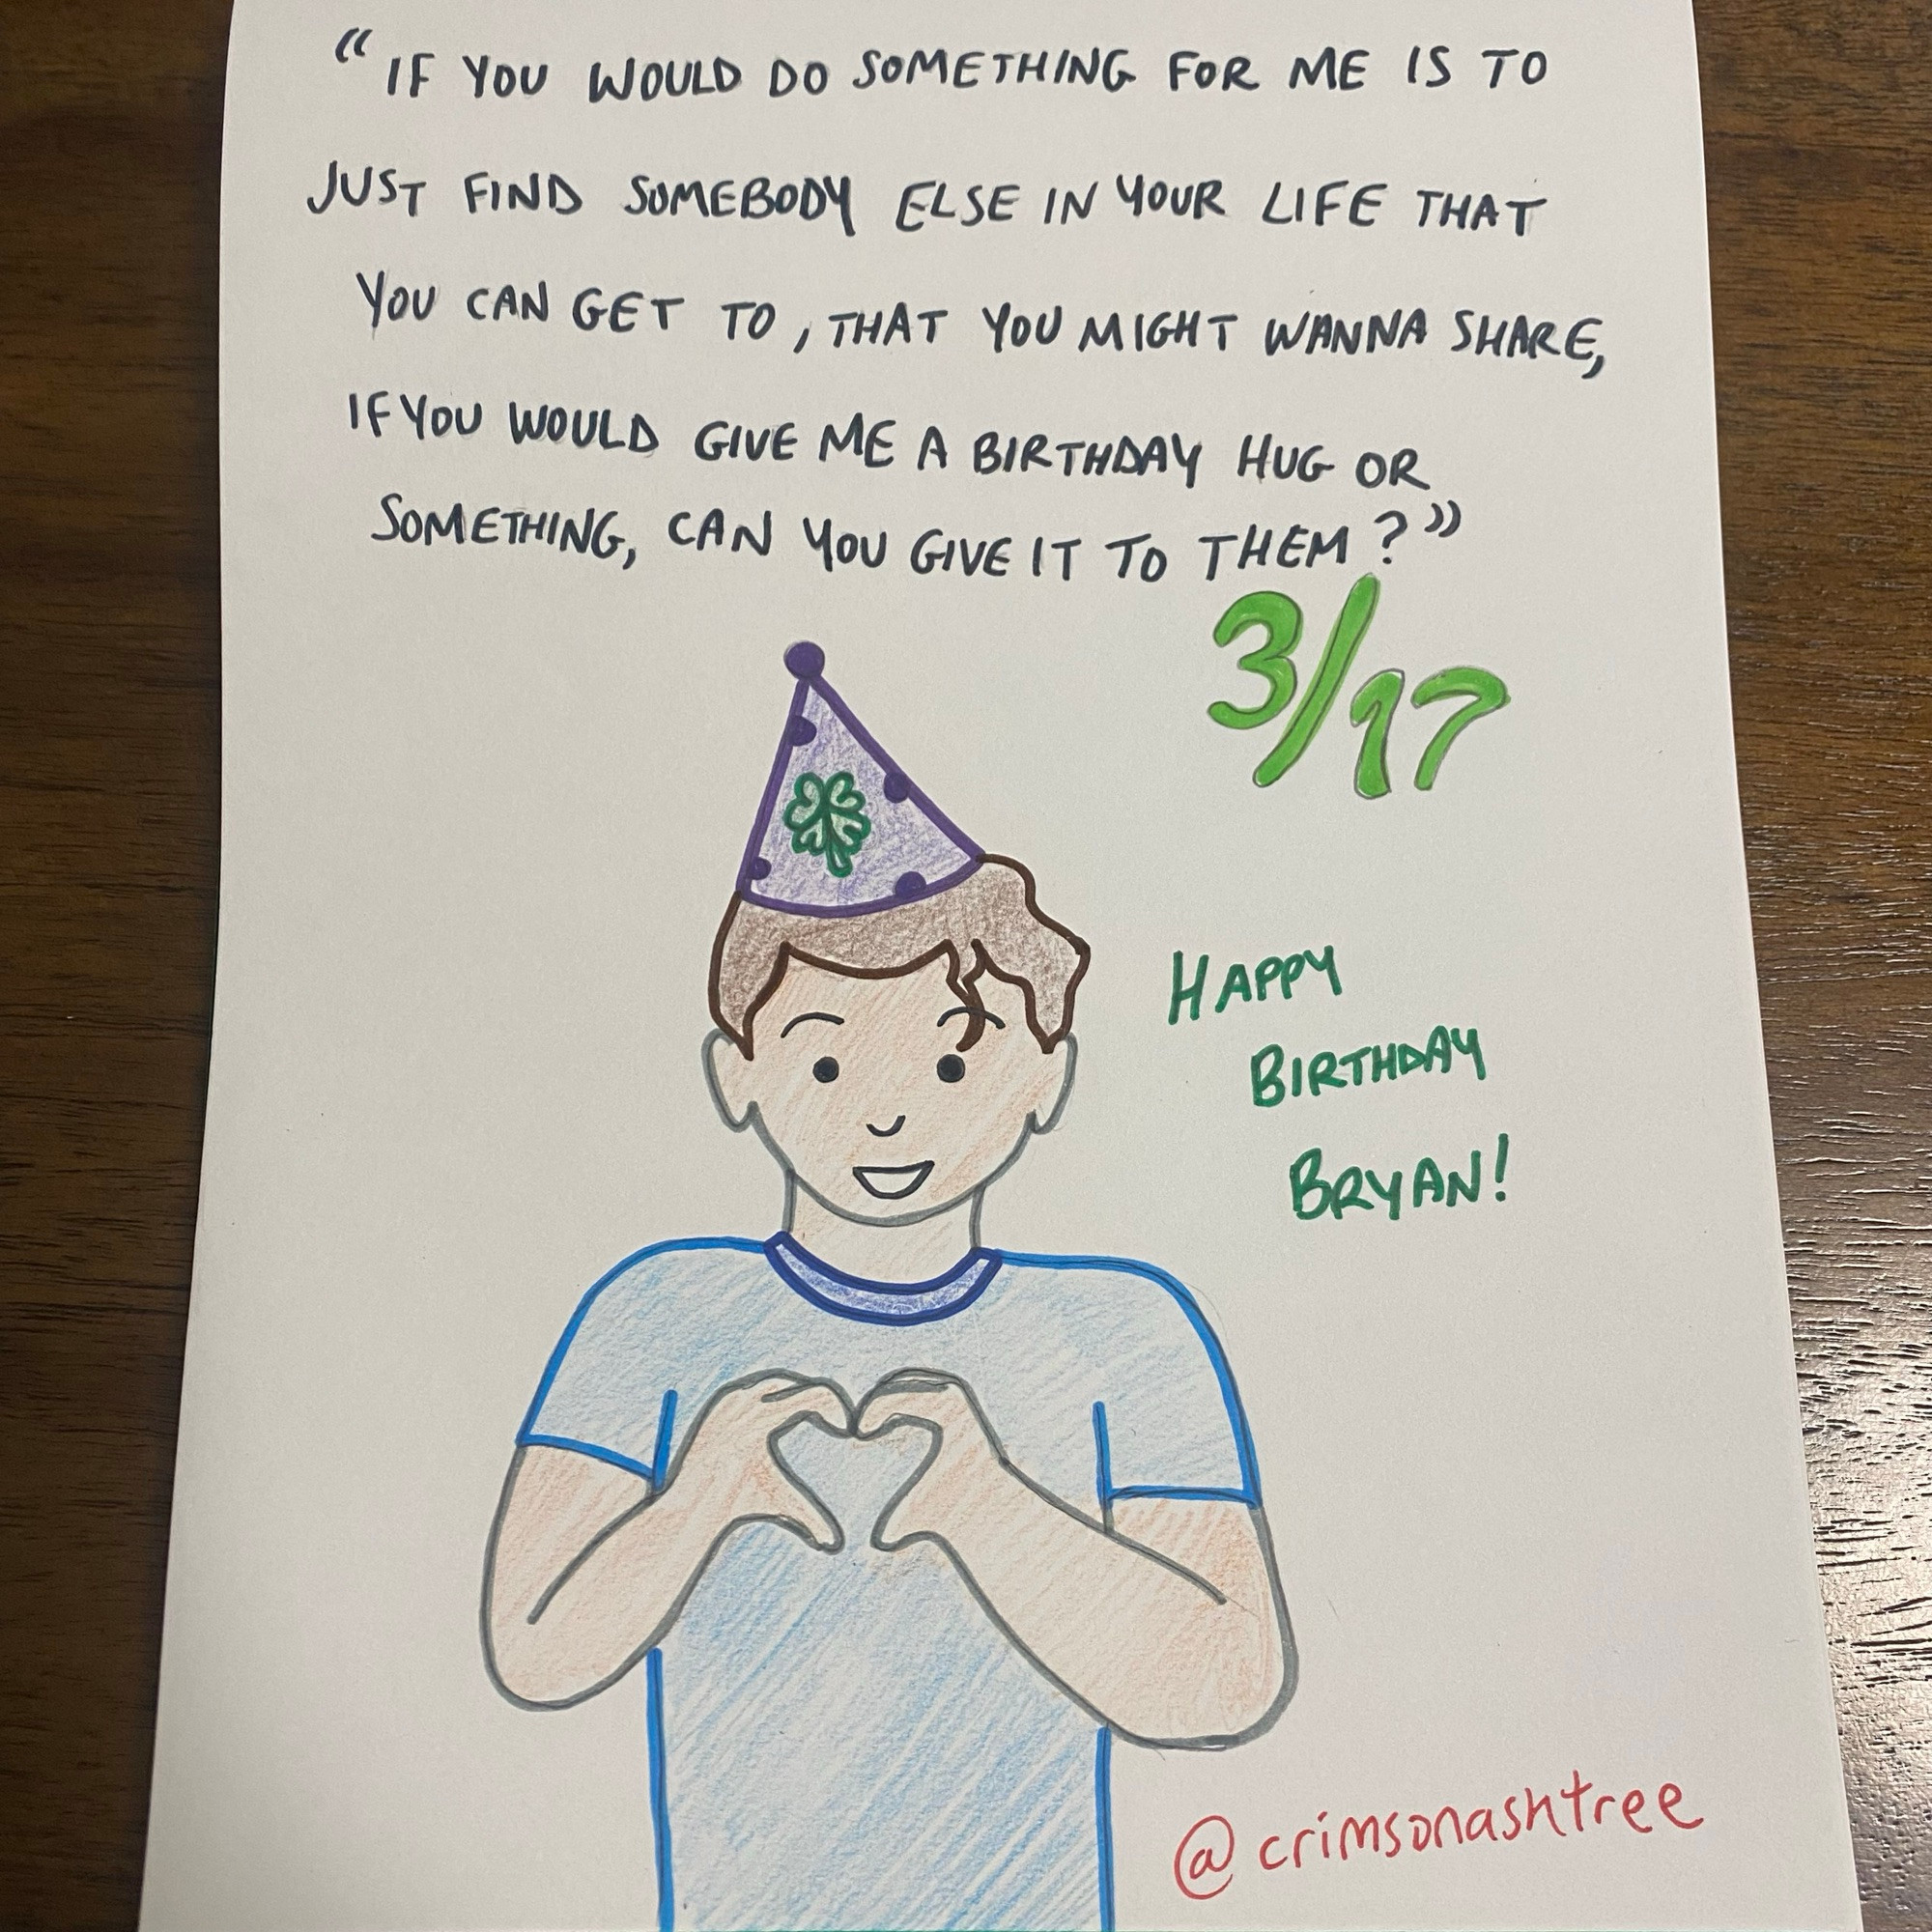 “IF YOU WOULD DO SOMETHING FOR ME IS TO
JUST FIND SOMEBODY ELSE IN YOUR LIFE THAT
YOU CAN GET TO, THAT YOU MIGHT WANNA SHARE,
IF YOU WOULD GIVE ME A BIRTHDAY HUG OR
SOMETHING, CAN YOU GIVE IT TO THEM?”
3/17
HAPPY
BIRTHDAY
BRYAN!
@crimsonashtree